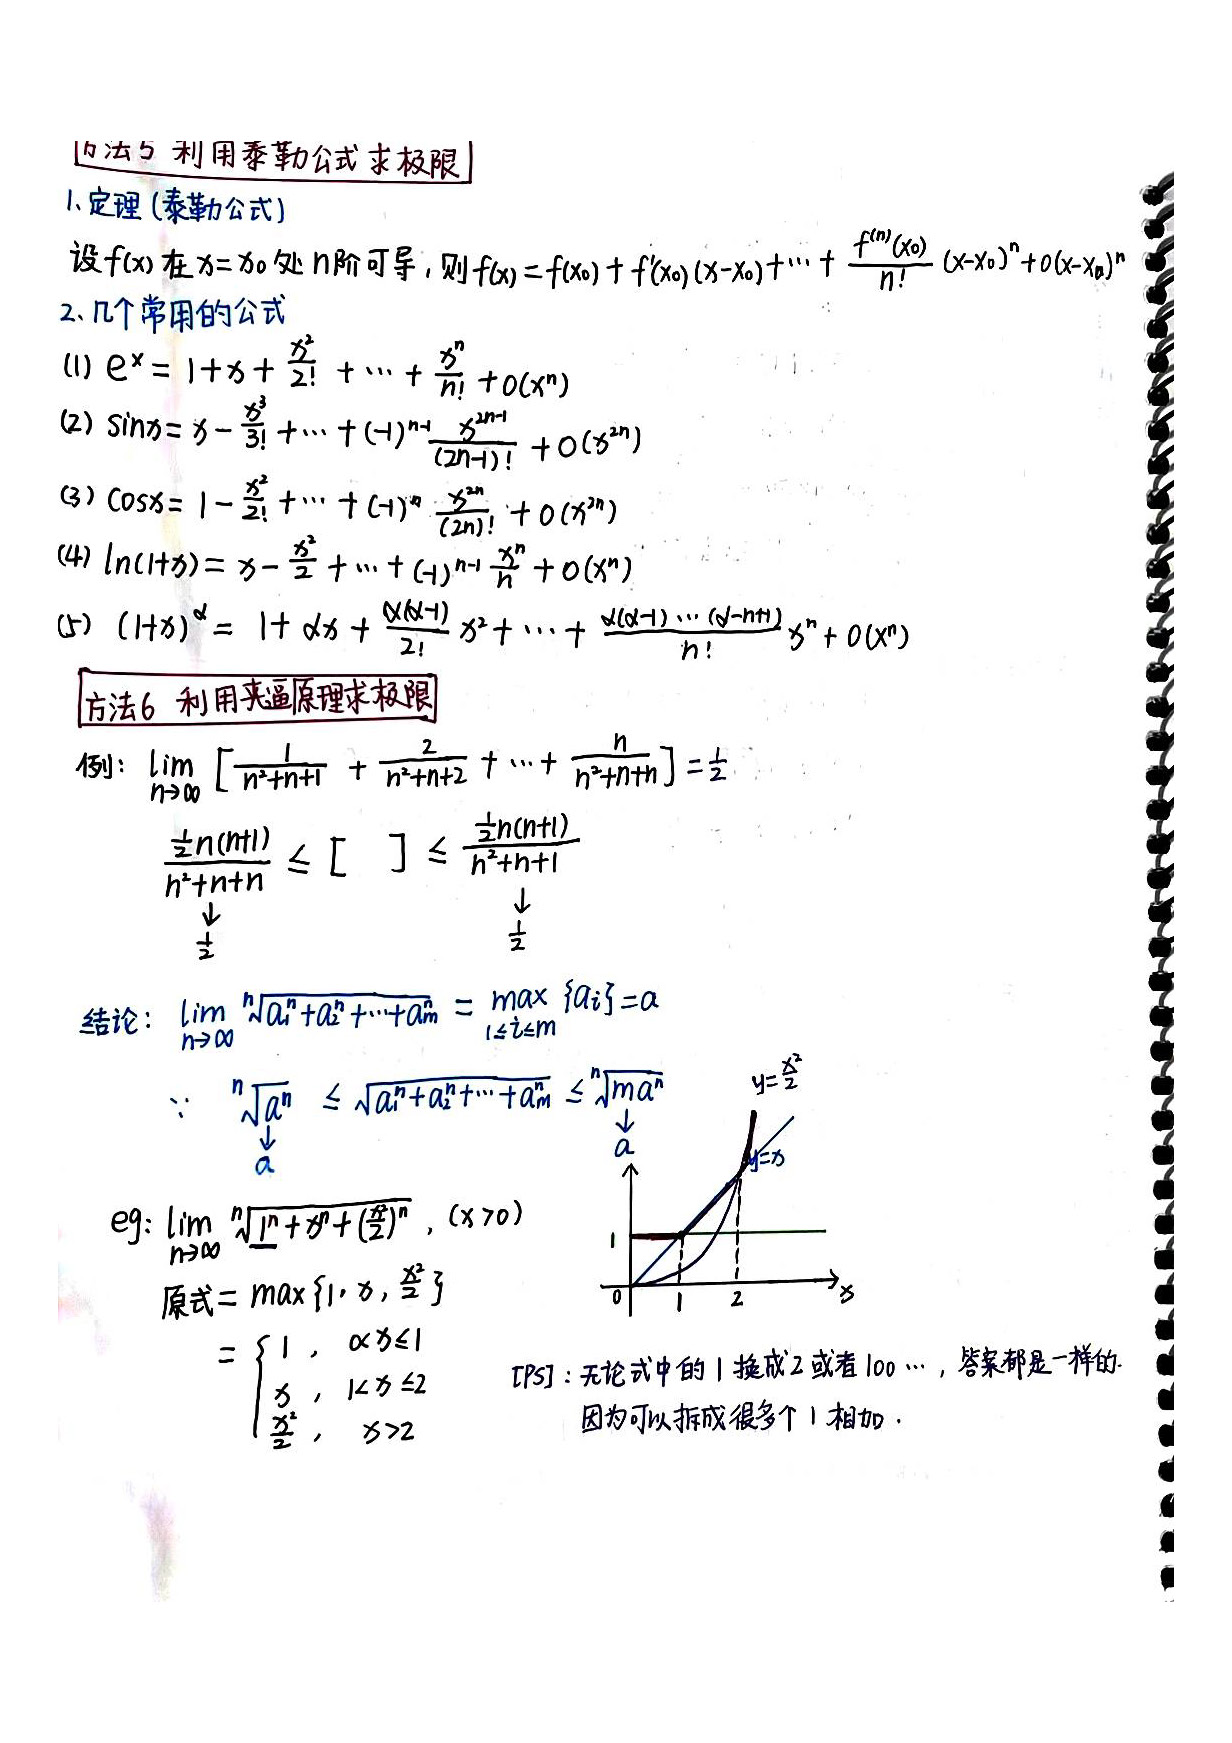 方法5 利用泰勒公式求极限
1、定理(泰勒公式)
设f(x)在x=x₀处n阶可导,则f(x)=f(x₀)+f'(x₀)(x-x₀)+…+ f⁽ⁿ⁾(x₀)/n! (x-x₀)ⁿ+o(x-x₀)ⁿ
2、几个常用的公式
(1) eˣ = 1+x+ x²/2! +…+ xⁿ/n! +o(xⁿ)
(2) sinx= x - x³/3! +…+(-1)ⁿ⁻¹ x²ⁿ⁻¹/(2n-1)! +o(x²ⁿ)
(3) cosx= 1 - x²/2! +…+(-1)ⁿ x²ⁿ/(2n)! +o(x²ⁿ)
(4) ln(1+x)= x - x²/2 +…+(-1)ⁿ⁻¹ xⁿ/n +o(xⁿ)
(5) (1+x)^α = 1+αx+ α(α-1)/2! x²+…+ α(α-1)…(α-n+1)/n! xⁿ+o(xⁿ)
方法6 利用夹逼原理求极限
例: lim n→∞ [ 1/(n²+n+1) + 2/(n²+n+2) +…+ n/(n²+n+n) ] = 1/2
½n(n+1)/(n²+n+n) ≤ [ ] ≤ ½n(n+1)/(n²+n+1)
↓ ↓
1/2 1/2
结论: lim n→∞ ⁿ√(a₁ⁿ+a₂ⁿ+…+aₘⁿ) = max 1≤i≤m {aᵢ}=a
∵ ⁿ√aⁿ ≤ √(a₁ⁿ+a₂ⁿ+…+aₘⁿ) ≤ ⁿ√(maⁿ)
↓ ↓
a a
y=x²/2
y=x
1
0 1 2 x
eg: lim n→∞ ⁿ√(1ⁿ+xⁿ+(x²/2)ⁿ) , (x>0)
原式= max{1, x, x²/2}
= { 1 , 0<x≤1
x , 1<x≤2
x²/2 , x>2
[PS]: 无论式中的1换成2或者100…,答案都是一样的.
因为可以拆成很多个1相加.